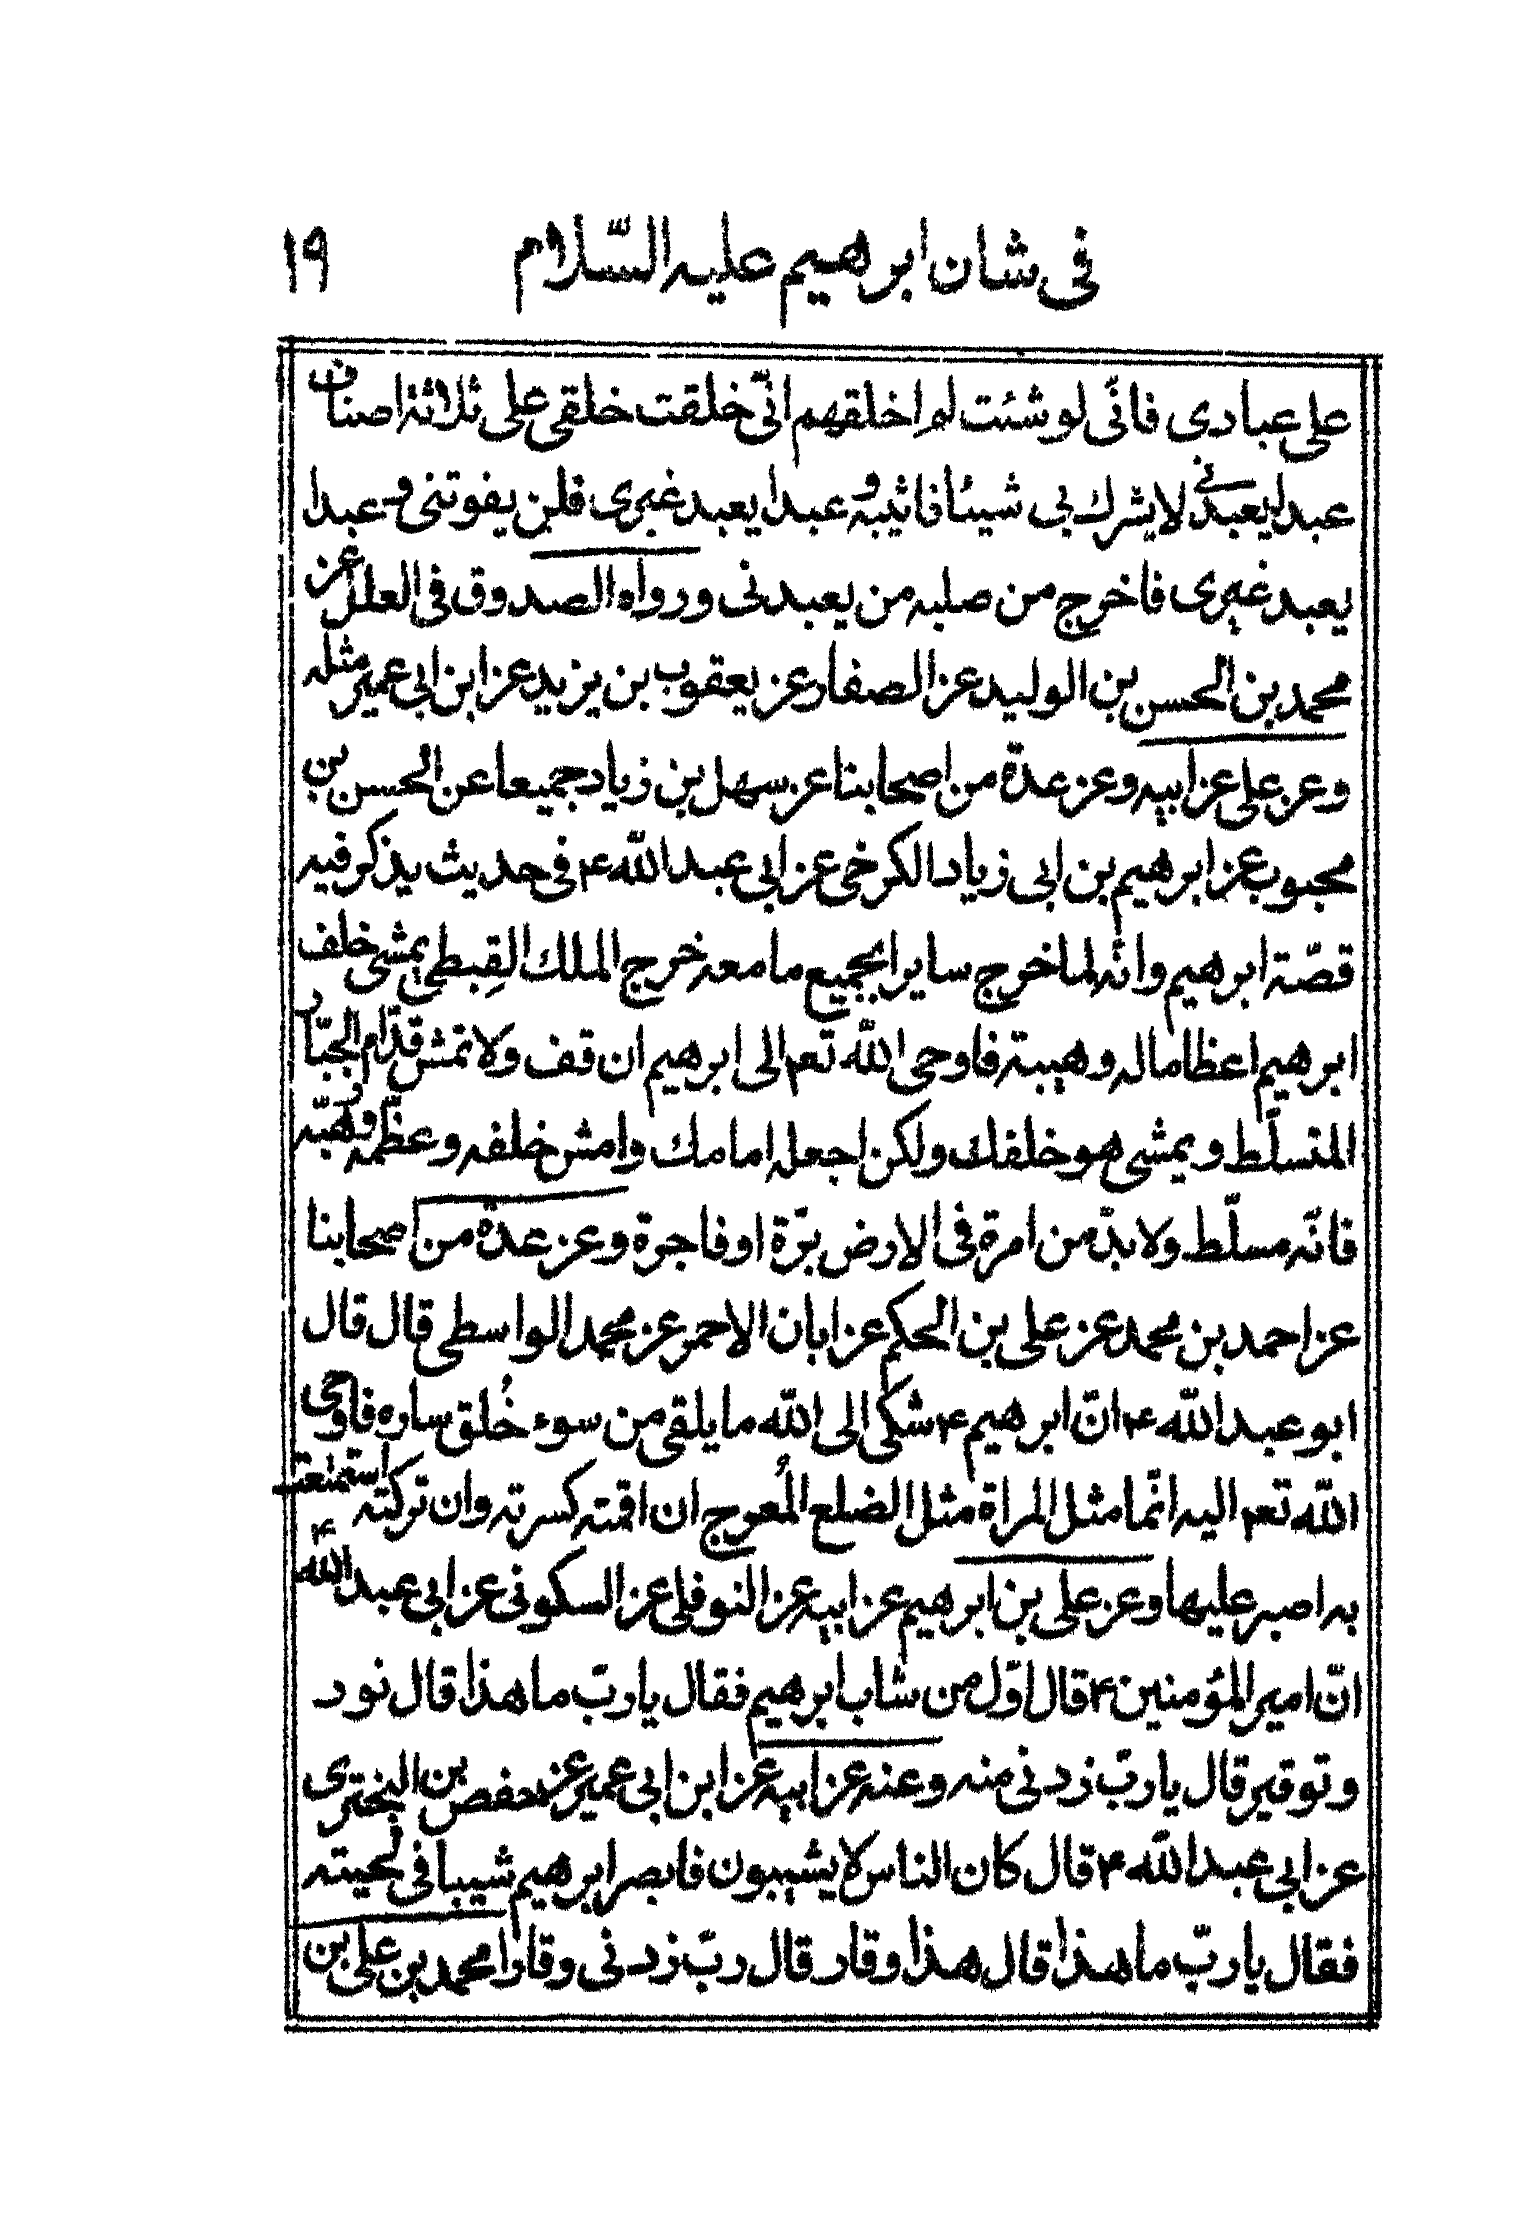 في شان ابرهيم عليه السّلام ١٩
على عبادى فانّى لو شئت لم اخلقهم انّى خلقت خلقى على ثلاثة اصناف
عبدا يعبدنى لا يشرك بى شيئا فاثيبه و عبدا يعبد غيرى فلن يفوتنى و عبدا
يعبد غيرى فاخرج من صلبه من يعبدنى ورواه الصدوق فى العلل عن
محمد بن الحسن بن الوليد عن الصفار عن يعقوب بن يزيد عن ابن ابى عمير مثله
وعن على عن ابيه وعن عدة من اصحابنا عن سهل بن زياد جميعا عن الحسن بن
محبوب عن ابرهيم بن ابى زياد الكرخى عن ابى عبد الله ع فى حديث يذكر فيه
قصّة ابرهيم وانّه لما خرج سايرا بجميع ما معه خرج الملك القبطى يمشى خلف
ابرهيم اعظاما له وهيبة فاوحى الله تعم الى ابرهيم ان قف ولا تمش قدّام الجبّار
المتسلّط ويمشى هو خلفك ولكن اجعله امامك وامش خلفه وعظّمه وهبّه
فانّه مسلّط ولا بدّ من امرة فى الارض برّة او فاجرة وعن عدّة من اصحابنا
عن احمد بن محمد عن على بن الحكم عن ابان الاحمر عن محمد الواسطى قال قال
ابو عبد الله ع انّ ابرهيم ع شكى الى الله ما يلقى من سوء خُلق ساره فاوحى
الله تعم اليه انّما مثل المراة مثل الضلع المُعوج ان اقمته كسرته وان تركته استمتعت
به اصبر عليها وعن على بن ابرهيم عن ابيه عن النوفلى عن السكونى عن ابى عبد الله ع
انّ امير المؤمنين ع قال اوّل من شاب ابرهيم فقال يا ربّ ما هذا قال نور
وتوقير قال يا ربّ زدنى منه وعنه عن ابيه عن ابن ابى عمير عن حفص بن البخترى
عن ابى عبد الله ع قال كان الناس لا يشيبون فابصر ابرهيم شيبا فى لحيته
فقال يا ربّ ما هذا قال هذا وقار قال ربّ زدنى وقارا محمد بن على بن